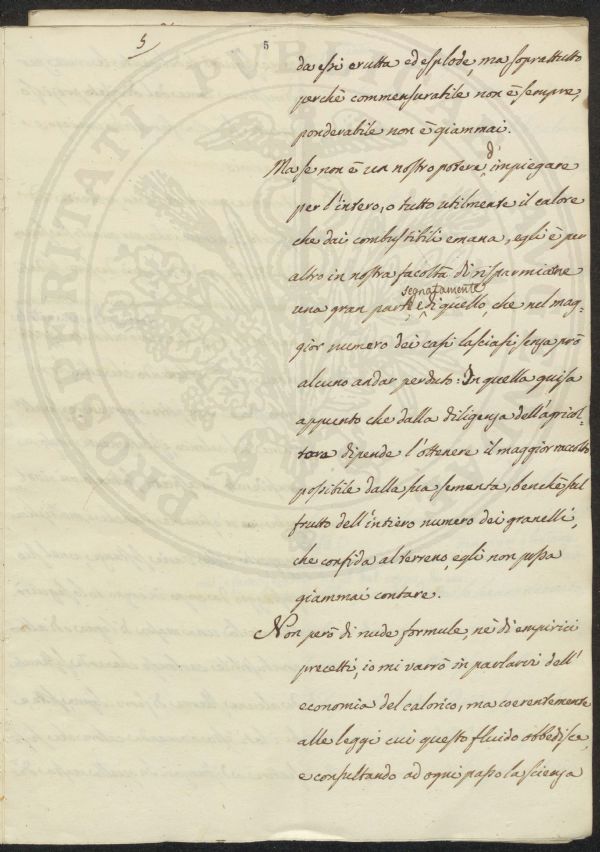 5
5
da essi erutta ed esplode, ma soprattutto
perchè commensurabile non è sempre,
ponderabile non è giammai.
Ma se non è un nostro potere d'impiegare
per l'intero, o tutto utilmente il calore
che dai combustibili emana, egli è per
altro in nostra facoltà di risparmiarne
segnatamente
una gran parte e di quello, che nel mag-
gior numero dei casi lasciasi senza prò
alcuno andar perduto: In quella guisa
appunto che dalla diligenza dell'agricol-
tore dipende l'ottenere il maggior raccolto
possibile dalla sua sementa, benchè sul
frutto dell'intiero numero dei granelli,
che confida al terreno, egli non possa
giammai contare.
Non però di nude formule, nè di empirici
precetti, io mi varrò in parlarvi dell'
economia del calorico, ma coerentemente
alle leggi cui questo fluido obbedisce,
e consultando ad ogni passo la scienza
PROSPERITATI PUBLICAE